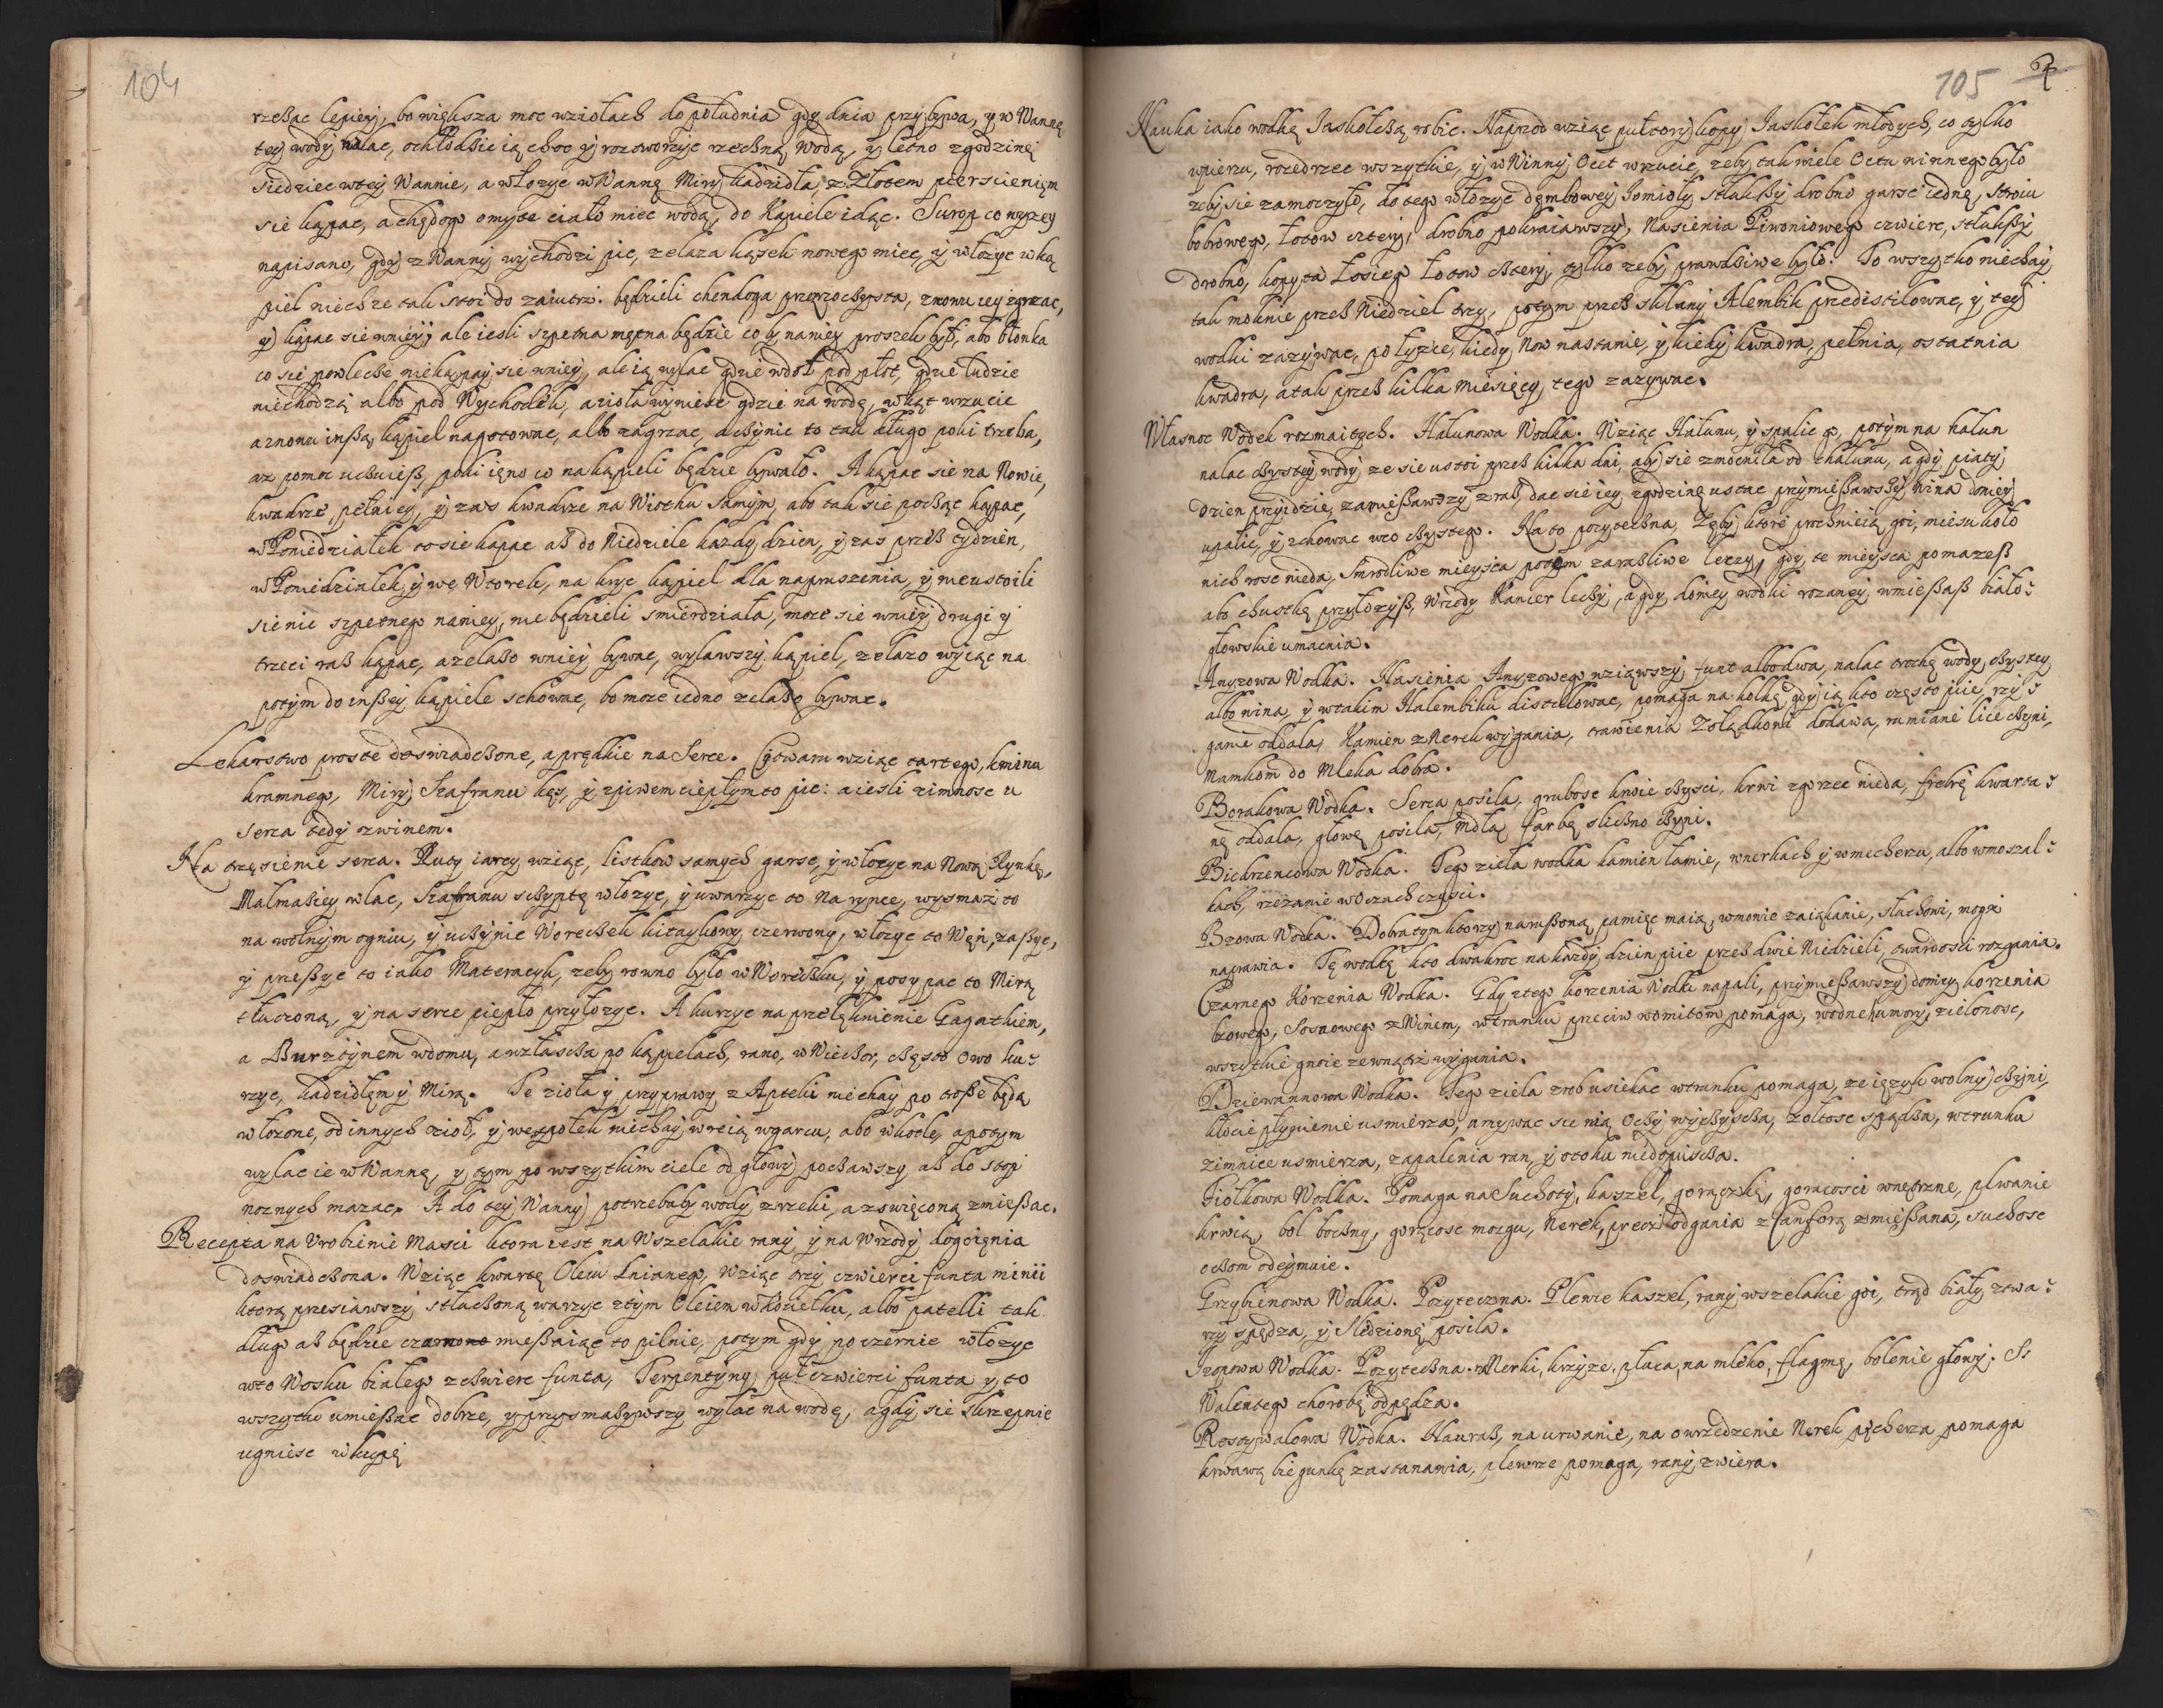 104
rzeßac lepiey, bo większa moc wziołach do południa gdy dnia przybywa, y w Wannę
tey wody wlac, ochłodzic ią choc y rozworzyc rzeczną wodą, y letno zgodzinę
siedziec wtey Wannie, a włozyc w Wannę Miry kadzidła, z Złotem pierscienięm
sie kąpac, a chędogo omyte ciało miec wodą, do Kąpiele idąc. Surop co wyzey
napisano, gdy z Wanny wychodzi pic, zelaza kąsek nowego miec, y włozyc w ką
piel niech ze tak stoi do zaiutrz. będzieli chendoga przezroczysta, znowu iey zgrzac,
y kąpac sie wniey, ale iesli szpetna mętna będzie co by namiey proszek był, abo błonka
co sie powlecze niekąpay sie wniey, ale ią wylac gdzie wdoł pod płot, gdzie ludzie
niechodzą albo pod Wychodek, a zioła wyniesc gdzie na wodę, w kąt wrzucic
a znowu inßą kąpiel nagotowac, albo zagrzac, a czynic to tak długo poki trzeba,
az pomoc uczuieß, poki ięno co na kąpieli będzie bywało. A kąpac sie na Nowie,
kwadrze, pełniey, y zas kwadrze na Wiotku samym, abo tak sie począc kąpac,
w Poniedziałek to sie kąpac aß do Niedziele kazdy dzien, y zas przeß tydzien,
w Poniedziałek, y we Wtorek, na kryc kąpiel dla naprószenia, y nieustoili
sie nic szpetnego naniey, nie będzieli smierdziała, moze sie wniey drugi y
trzeci raß kąpac, a zelazo wniey bywac, wylawszy kąpiel, zelazo wyiąc na
potym do inßey kąpiele schowac, bo moze iedno zelazo bywac.
Lekarstwo proste doswiadczone, a prędkie na Serce. Cytwaru wziąc tartego, kminu
kramnego, Miry, Szafranu kęs, y zpiwem ciepłym to pic: a iesli zimnosc u
serca tedy zwinem.
Na trzęsienie serca. Ruty iarey wziąc, listkow samych garsc, y włozyc na Nową Rynkę,
Małmaziey wlac, Szafranu szczyptę włozyc, y uwarzyc to na rynce, wysmaż to
na wolnym ogniu, y uczynic Woreczek kitaykowy czerwony, włozyc to Węń, zaßyc,
y przeßyc to iako Materacyk, zeby rowno było w Woreczku, y posypac to Mirą
tłuczoną, y na serce ciepło przyłozyc. A kurzyc na przelęknienie Gagatkiem,
a Burztynem wdomu, a wzłaszcza po kąpielach, rano, w Wieczor, często owo ku-
rzyc, kadzidłęm y Mirą. Te zioła y przyprawy z Apteki niechay po troße będą
włozone, od innych zioł, y wespołek niechay wreią wgarcu, abo w kotle, a potym
wylac ie w Wannę, y tym po wszytkim ciele od głowy począwszy aß do stop
noznych mazac. A do tey Wanny potrzebaby wody z rzeki, a z swięconą zmießac.
Recepta na Vrobienie Masci ktora iest na Wszelakie rany y na Wrzody dogoięnia
doswiadczona. Wziąc kwartę Oleiu Lnianego, Wziąc trzy czwierci funta minii
ktorą przesiawszy stłuczoną warzyc ztym Oleiem w kociełku, albo patelli tak
długo aß będzie czarno mießaiąc to pilnie, potym gdy poczernie włozyc
wto Wosku białego zczwierc funta, Terpentyny, puł czwierci funta y to
wszytko umießac dobrze, y przysmaßywszy wylac na wodę, a gdy sie skrzepnie
ugniesc w kupę
105
Nauka iako wodkę Jaskołczą robic. Naprzod wziąc pułtory kopy Jaskołek młodych, co tylko
wpierzu, rozedrzec wszytkie, y w Winny Ocet wrzucic, zeby tak wiele Octu winnego było
zeby sie zamoczyło, do tego włozyc dęmbowey Jemioły stłukßy drobno garsc iedną, Stroiu
bobrowego, łotow cztery, drobno pokraiawszy, Nasienia Piwoniowego czwierc, stłukßy
drobno, kopyta Łosiego łotow cztery, tylko zeby prawdziwe było. To wszytko niechay
tak moknie przeß Niedziel trzy, potym przeß sklany Alembik przedistilowac, y tey
wodki zazywac, po łyzce, kiedy Now nastanie, y kiedy kwadra, pełnia, ostatnia
kwadra, a tak przeß kilka Miesięcy, tego zazywac.
Własnoc Wodek rozmaitych. Hałunowa Wodka. Wziąc Hałunu, y spalic go, potym na hałun
nalac czystey wody, ze sie ustoi przeß kilka dni, aby sie zmocniła od thałunu, a gdy piąty
dzien przyidzie, zamießawszy zraß, dac sie iey zgodzinę ustac przymießawszy wina doniey
upalic, y zchowac wco czystego. Na to pozyteczna, Zęby ktore prochnieią goi, miesu koło
nich rosc nieda, Smrodliwe mieysca potym zarazliwe leczy, gdy te mieysca pomazeß
abo chustkę przyłozyß, Wrzody Kancer leczy, a gdy doniey wodki rozaney wmießaß biało-
głowskie umacnia.
Anyzowa Wodka. Nasienia Anyzowego wziąwszy funt albo dwa, nalac trochę wody czystey
albo wina, y wtakim Halembiku distillowac, pomaga na kolkę gdy ią kto często piie, rzy-
ganie oddala, Kamien z Nerek wygania, trawienia Zołądkowi dodawa, rumiane lice czyni,
Mamkom do Mleka dobra.
Borakowa Wodka. Serca posila, grubosc krwie czysci, krwi zgorzec nieda, frebrę kwarta-
nę oddala, głowę posila, Mdłą farbę sliczno czyni.
Biedrzencowa Wodka. Tego ziela wodka kamien łamie, wnerkach y wmecherzu, albo wmoszal-
kach, rzezanie w Oczach częsci.
Bzowa Wodka. Dobra tym ktorzy narußoną pamięc maią, wmowie zaiąkanie, słuchowi, mogzi
naprawia. Tę wodkę kto dwakroc na kazdy dzien piie przeß dwie Niedzieli, twardosci rozgania.
Czarnego Korzenia Wodka. Gdy ztego korzenia Wodki napali, przymießawszy doniey korzenia
bzowego, Sosnowego z Winem, wtrunku przeciw womitom pomaga, wodne humory, zielonosc,
wszytkie gnoie zewnątrz wygania.
Dziewannowa Wodka. Tego ziela zrob usiekac wtrunku pomaga, ze ięzyk wolny czyni,
kłocie płynienie usmierza, umywac sie nią Oczy wyczyscza, zołtosc spądza, wtrunku
zimnice usmierza, zapalenia ran, y otoku niedopuscza.
Fiołkowa Wodka. Pomaga na Suchoty, kaszel, gorączkę, gorącosci wnętrzne, plwanie
krwią, bol boczny, gorącosc mozgu, Nerek, precz odgania z Canforą zmięßana, suchosc
oczom odeymuie.
Grzybieniowa Wodka. Pozyteczna. Plewre kaszel, rany wszelakie goi, trąd biały ztwa-
rzy spędza, y Sledzionę posila.
Izopowa Wodka. Pozyteczna. Nerki, krzyze, płuca, na mleko, flagmę, bolenie głowy. S.
Walentego chorobę odpędza.
Rosczywałowa Wodka. Nauraß, na urwanie, na owrzedzenie Nerek pęcherza pomaga
krwawą biegunkę zastanawia, plewrze pomaga, rany zwiera.